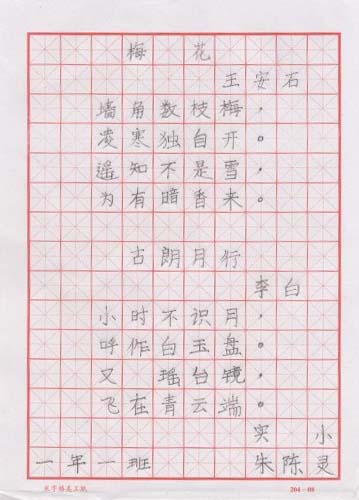 梅花
王安石
墙角数枝梅，
凌寒独自开。
遥知不是雪，
为有暗香来。
古朗月行
李白
小时不识月，
呼作白玉盘。
又 瑶台镜，
飞在青云端。
实小
一年一班 朱陈灵
米字格美工纸 204-08